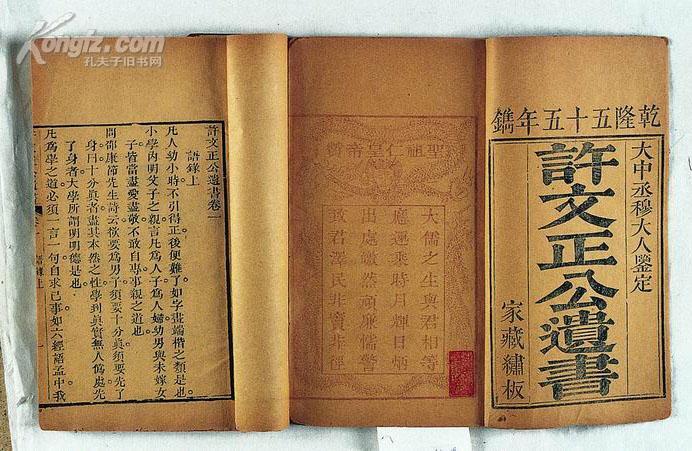 Kongfz.com
孔夫子旧书网
乾隆五十五年鐫
大中丞穆大人鑒定
許文正公遺書
家藏繡板
聖祖仁皇帝
大儒之生與君相等
應運乘時月輝日炳
出處皦然頑廉懦警
致君澤民非賣非
許文正公遺書卷一
語錄上
凡人幼小時不引得正後便難了如字畫端楷之類是也。
小學內明父子之親言凡為人子為人婦幼男與未嫁女
子皆當盡愛盡敬不敢自專事親之道也。
問邵康節先生詩云欲要為男子須要十分真須要先了
身曰十分真者盡其本然之性學到真實無人偽處先
了身者大學所謂明明德是也。
凡為學之道必須一言一句自求己事如六經語孟中我